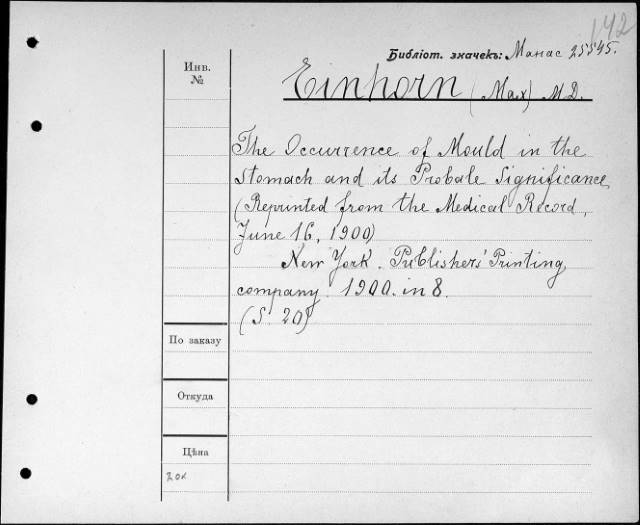 142
Библіот. значекъ: Манас 25545.
Инв.
№
Einhorn (Max) M.D.
The Occurrence of Mould in the
Stomach and its Probale Significance
(Reprinted from the Medical Record,
June 16, 1900)
New York. Publishers' Printing
company. 1900. in 8.
(S. 20)
По заказу
Откуда
Цѣна
20к